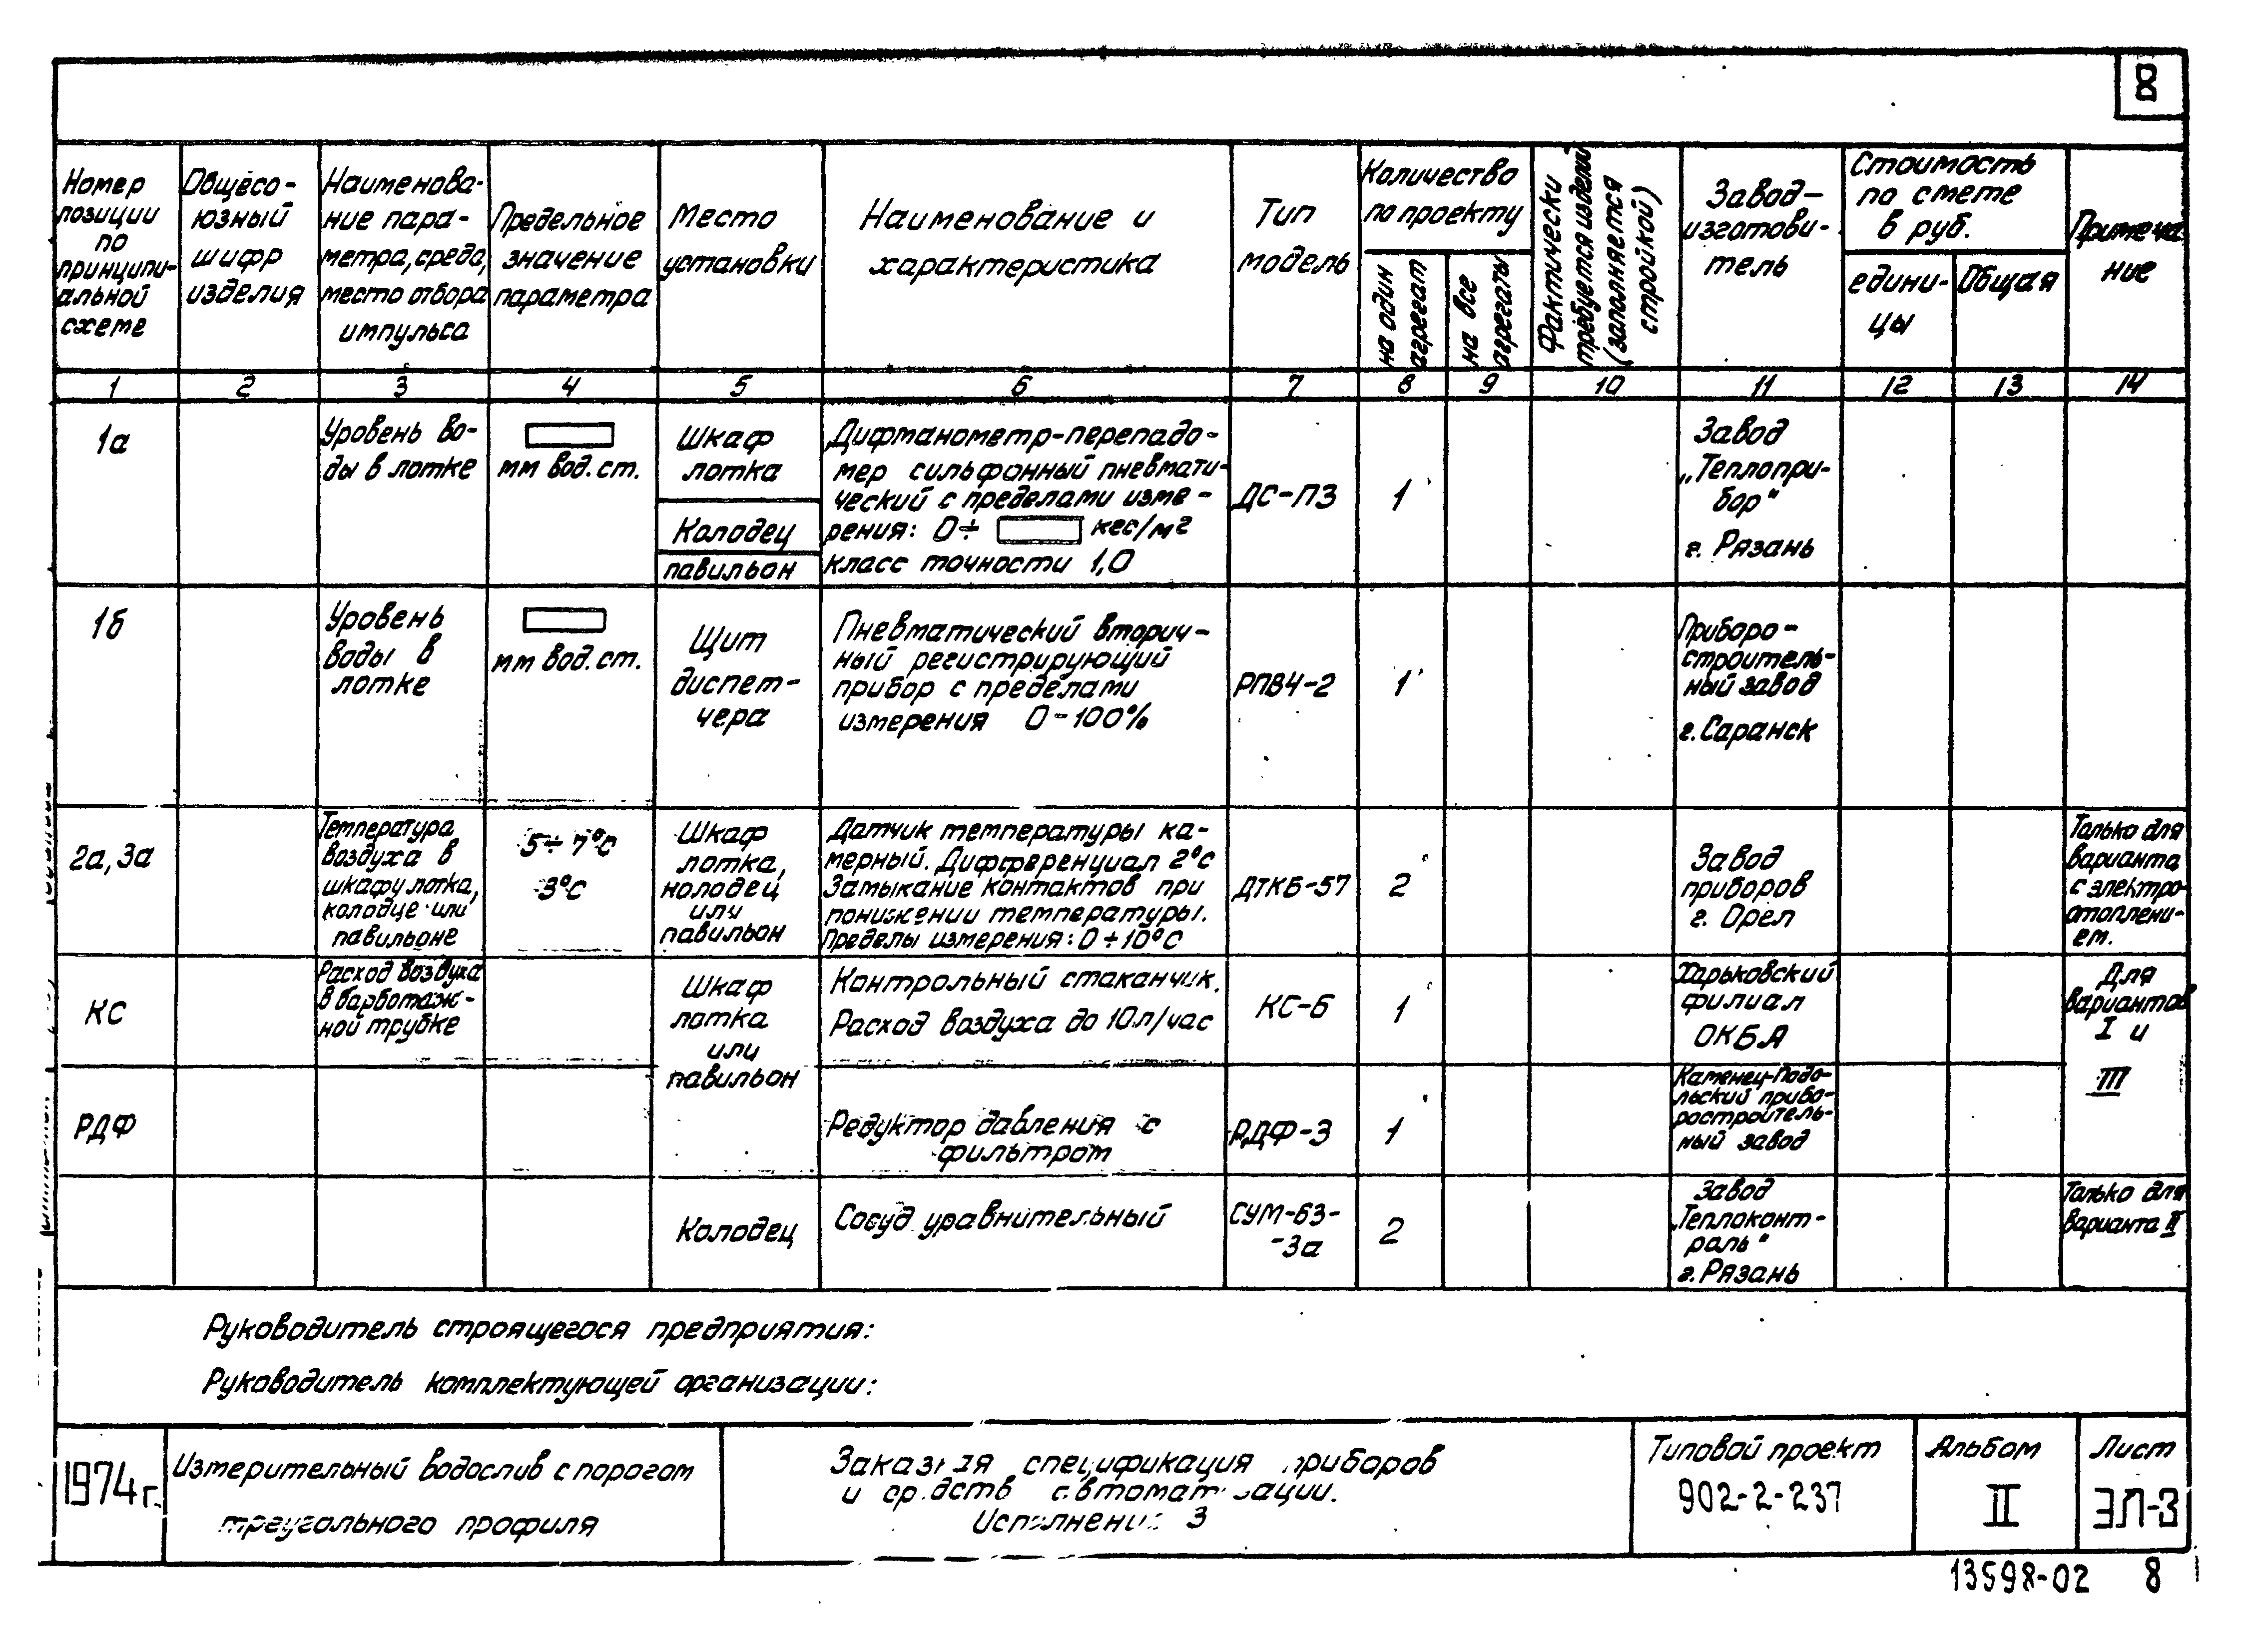 8
Номер
позиции
по
принципи-
альной
схеме
Общесо-
юзный
шифр
изделия
Наименова-
ние пара-
метра, среда,
место отбора
импульса
Предельное
значение
параметра
Место
установки
Наименование и
характеристика
Тип
модель
Количество
по проекту
на один
агрегат
на все
агрегаты
Фактически
требуется изделий
(заполняется
стройкой)
Завод-
изготови-
тель
Стоимость
по смете
в руб.
едини-
цы
Общая
Примеча
ние
1 2 3 4 5 6 7 8 9 10 11 12 13 14
1а
Уровень во-
ды в лотке
мм вод. ст.
Шкаф
лотка
Колодец
павильон
Дифманометр-перепадо-
мер сильфонный пневмати-
ческий с пределами изме-
рения: 0÷ кес/м2
класс точности 1,0
ДС-П3
1
Завод
„Теплопри-
бор"
г. Рязань
1б
Уровень
воды в
лотке
мм вод. ст.
Щит
диспет-
чера
Пневматический вторич-
ный регистрирующий
прибор с пределами
измерения 0-100%
РПВ4-2
1
Приборо-
строитель-
ный завод
г. Саранск
2а, 3а
Температура
воздуха в
шкафу лотка,
колодце или
павильоне
5÷7°С
3°С
Шкаф
лотка,
колодец
или
павильон
Датчик температуры ка-
мерный. Дифференциал 2°С
Замыкание контактов при
понижении температуры.
Пределы измерения: 0÷10°С
ДТКБ-57
2
Завод
приборов
г. Орел
Только для
варианта
с электро-
отоплени-
ем.
КС
Расход воздуха
в барботаж-
ной трубке
Шкаф
лотка
или
павильон
Контрольный стаканчик.
Расход воздуха до 10л/час
КС-Б
1
Харьковский
филиал
ОКБА
Для
вариантов
I и
III
РДФ
Редуктор давления с
фильтром
РДФ-3
1
Каменец-Подо-
льский прибо-
ростроитель-
ный завод
Колодец
Сосуд уравнительный
СУМ-63-
-3а
2
Завод
„Теплоконт-
роль"
г. Рязань
Только для
варианта II
Руководитель строящегося предприятия:
Руководитель комплектующей организации:
1974г.
Измерительный водослив с порогом
треугольного профиля
Заказная спецификация приборов
и средств автоматизации.
Исполнение 3
Типовой проект
902-2-237
Альбом
II
Лист
ЭЛ-3
13598-02 8